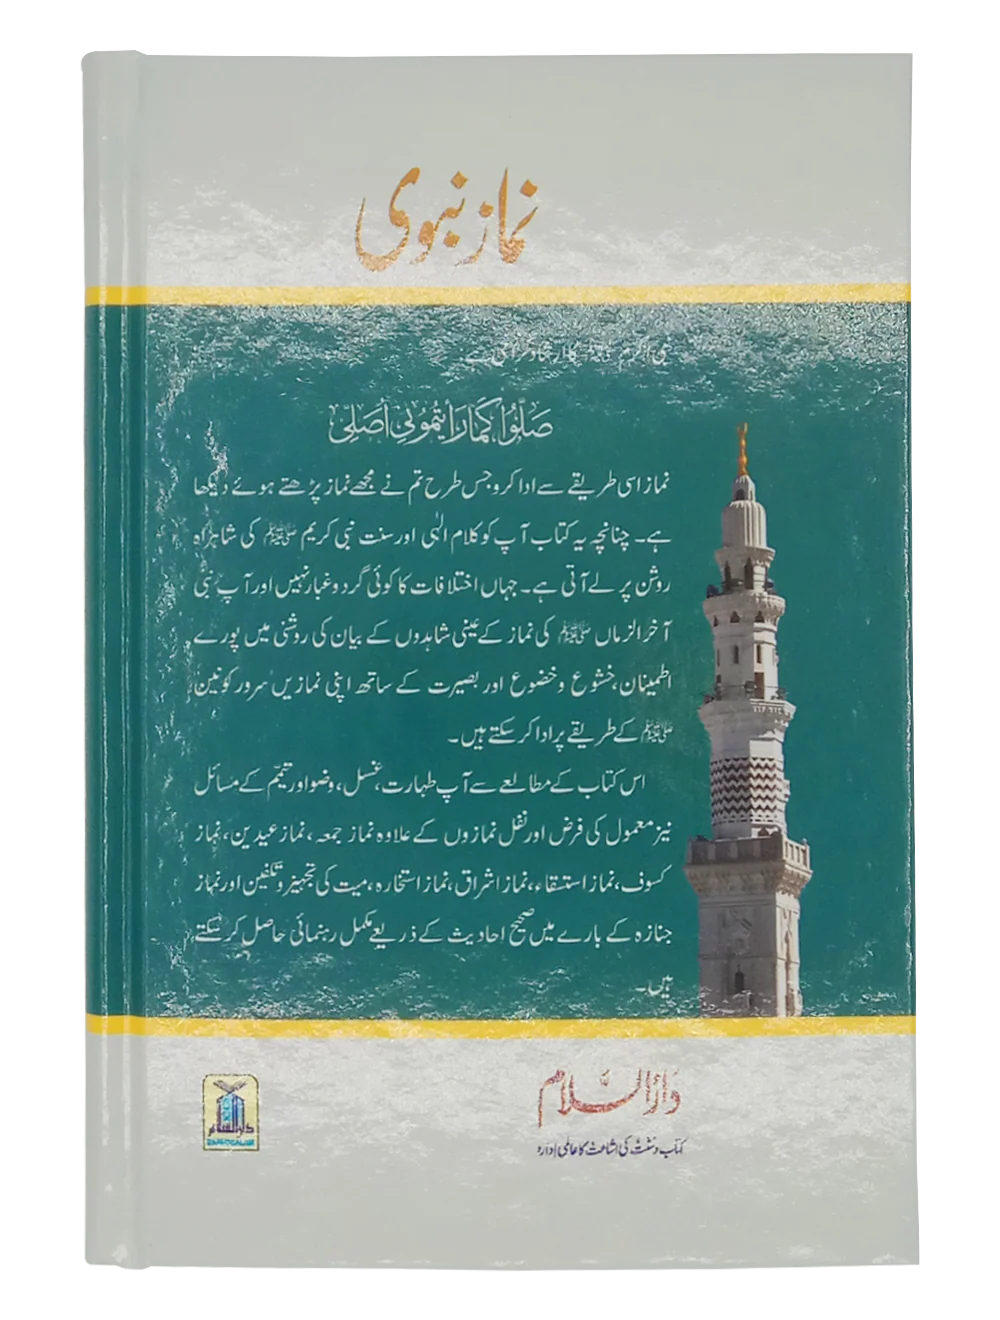 نماز نبوی
نبی اکرم ﷺ کا ارشاد گرامی ہے
صَلُّوا كَمَا رَأَيْتُمُونِي أُصَلِّي
نماز اسی طریقے سے ادا کرو جس طرح تم نے مجھے نماز پڑھتے ہوئے دیکھا
ہے۔ چنانچہ یہ کتاب آپ کو کلام الٰہی اور سنت نبی کریم ﷺ کی شاہراہ
روشن پر لے آتی ہے۔ جہاں اختلافات کا کوئی گرد و غبار نہیں اور آپ نبی
آخر الزماں ﷺ کی نماز کے عینی شاہدوں کے بیان کی روشنی میں پورے
اطمینان، خشوع و خضوع اور بصیرت کے ساتھ اپنی نمازیں سرور کونین
ﷺ کے طریقے پر ادا کر سکتے ہیں۔
اس کتاب کے مطالعے سے آپ طہارت، غسل، وضو اور تیمّم کے مسائل
نیز معمول کی فرض اور نفل نمازوں کے علاوہ نماز جمعہ، نماز عیدین، نماز
کسوف، نماز استسقاء، نماز اشراق، نماز استخارہ، میت کی تجہیز و تکفین اور نماز
جنازہ کے بارے میں صحیح احادیث کے ذریعے مکمل رہنمائی حاصل کر سکتے
ہیں۔
دارالسلام
کتاب و سنت کی اشاعت کا عالمی ادارہ
دارالسلام
DARUSSALAM